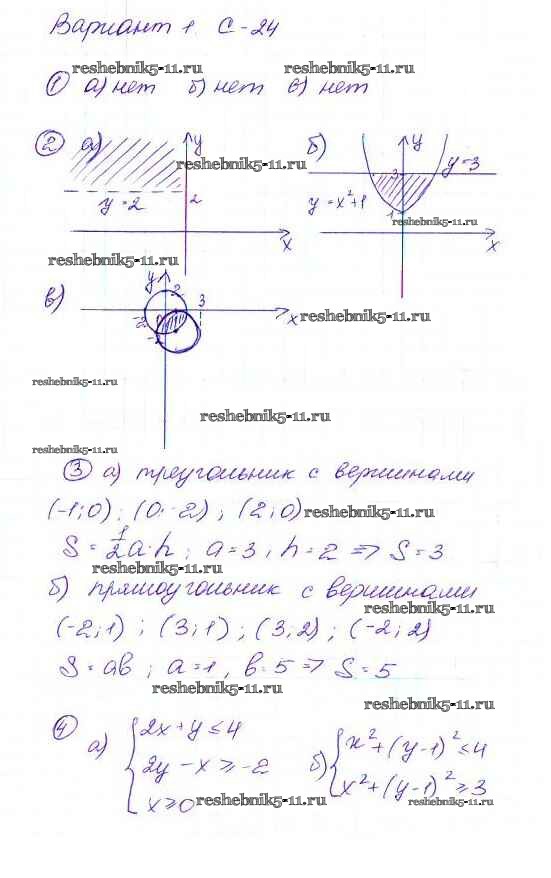 Вариант 1. С-24
reshebnik5-11.ru reshebnik5-11.ru
① а) нет б) нет в) нет
② а) y б) y
reshebnik5-11.ru
y=3
3
y=2 2
y=x²+1 1
reshebnik5-11.ru
x x
reshebnik5-11.ru
в) y 2 3
-2 x
reshebnik5-11.ru
-2
reshebnik5-11.ru
reshebnik5-11.ru
reshebnik5-11.ru
③ а) треугольник с вершинами
(-1;0); (0;-2); (2;0) reshebnik5-11.ru
S = 1/2 a·h; a=3, h=2 => S=3
reshebnik5-11.ru
б) прямоугольник с вершинами
reshebnik5-11.ru
(-2;1); (3;1); (3;2); (-2;2)
S=ab; a=1, b=5 => S=5
reshebnik5-11.ru
reshebnik5-11.ru
④ а) { 2x+y≤4
2y-x≥-2
x≥0
reshebnik5-11.ru
б) { x²+(y-1)²≤4
x²+(y-1)²≥3
reshebnik5-11.ru